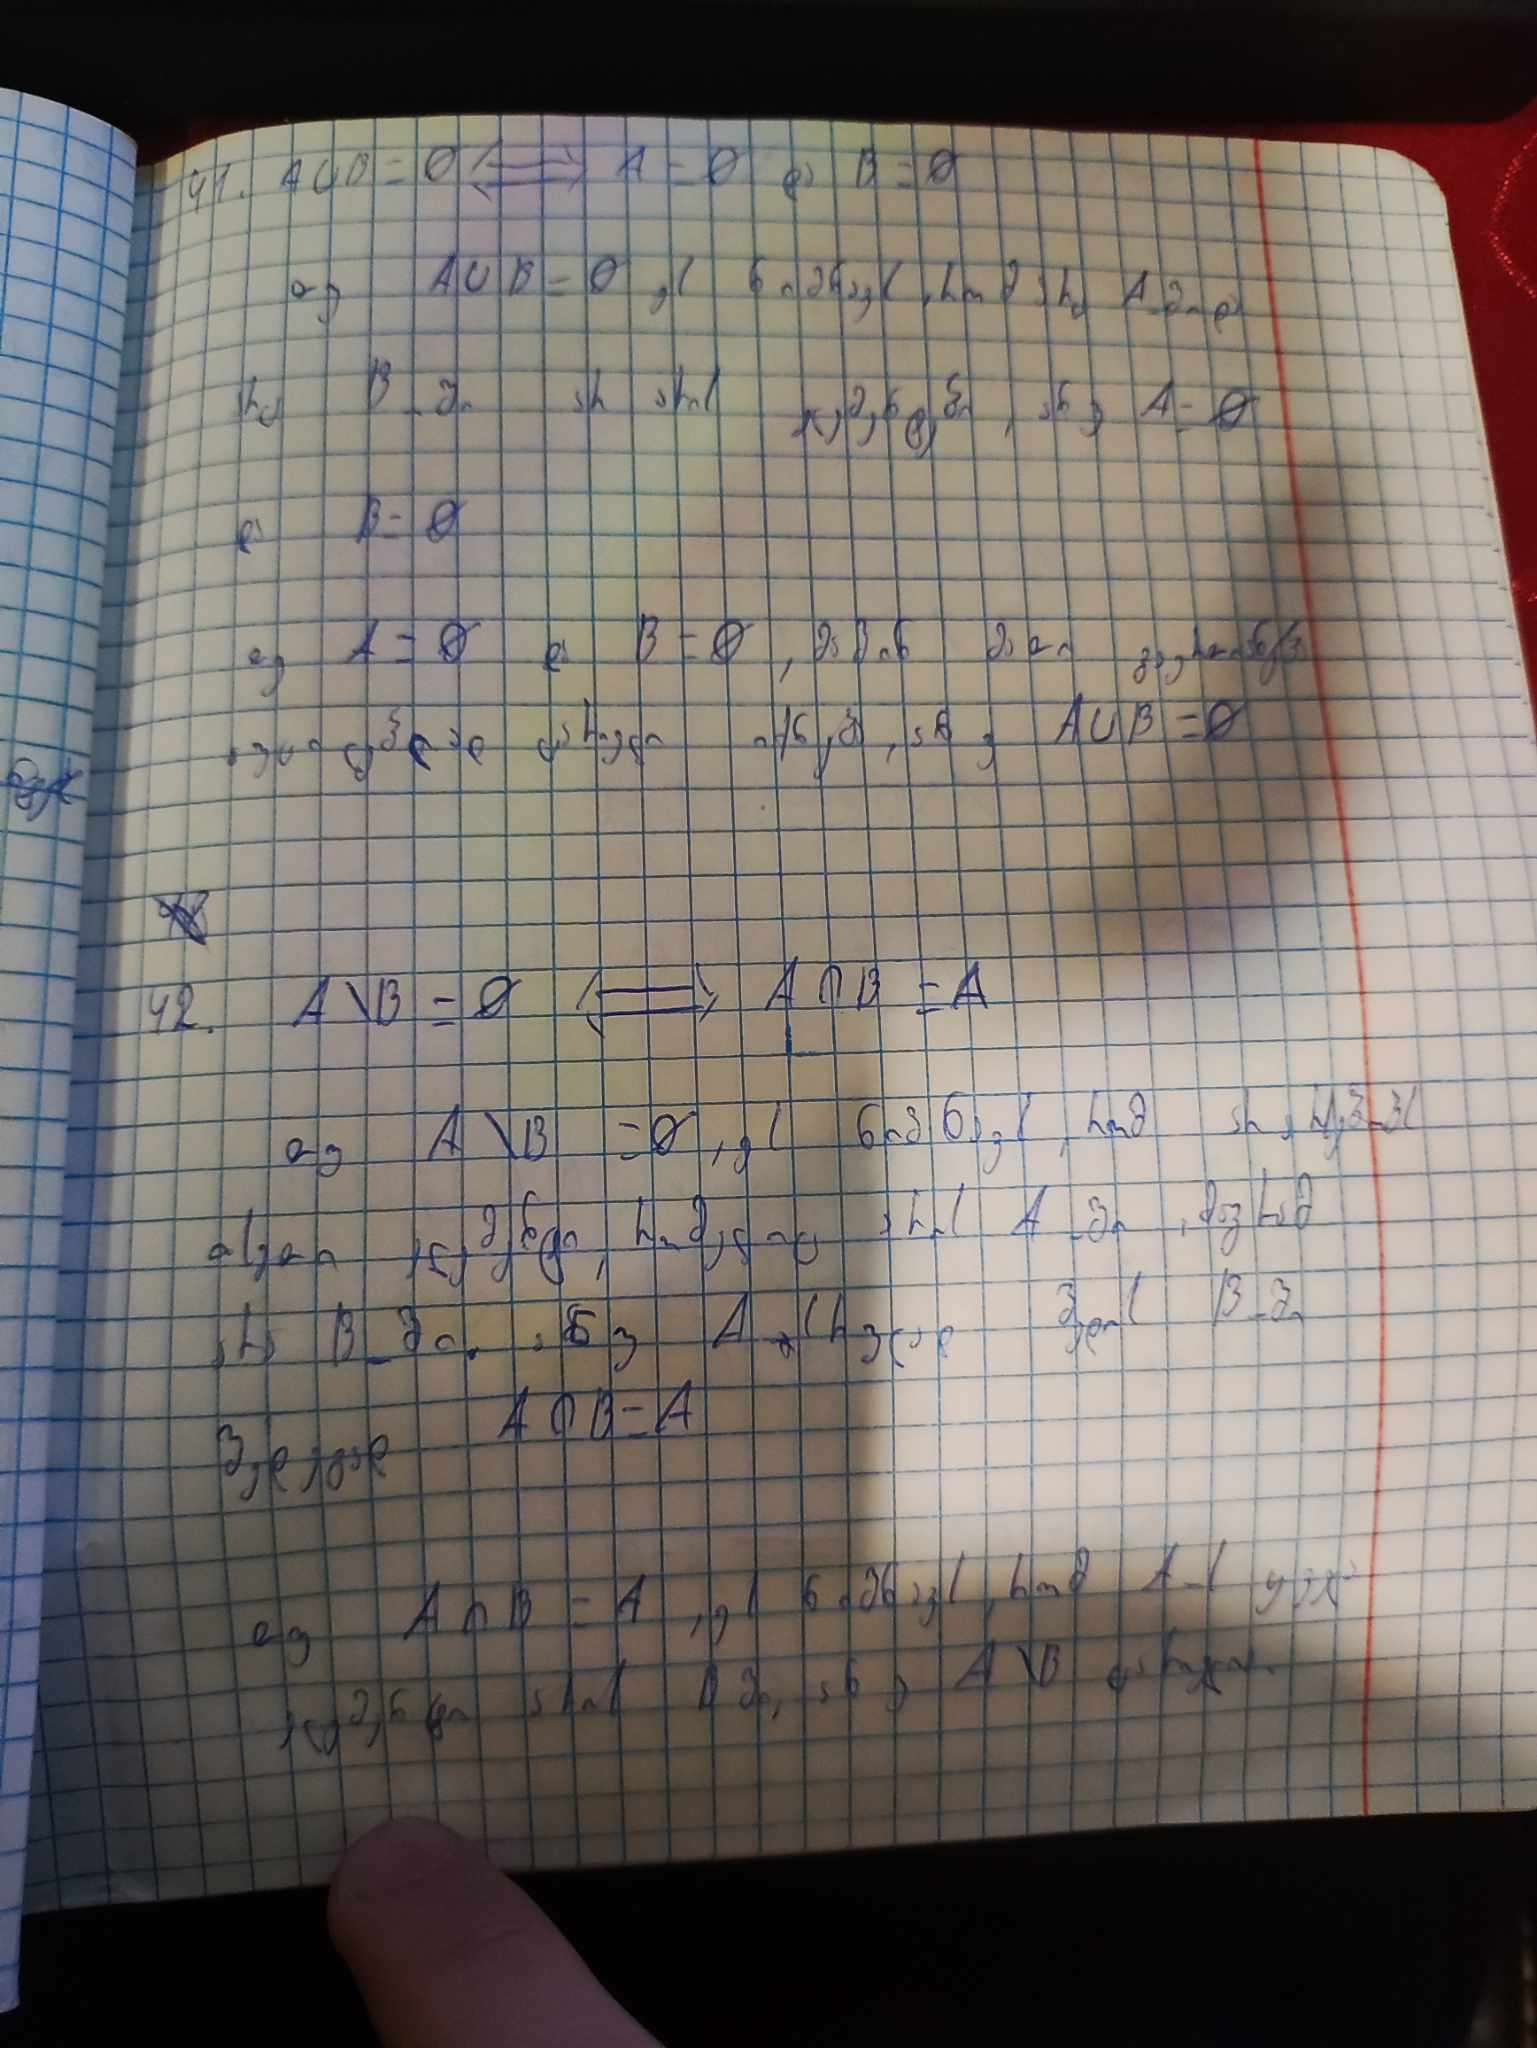 41. A∪B = ∅ ⟺ A = ∅ და B = ∅
თუ A∪B = ∅, ეს ნიშნავს, რომ არც A-ში და
არც B-ში არ არის ელემენტი, ანუ A = ∅
და B = ∅
თუ A = ∅ და B = ∅, მაშინ მათი გაერთიანება
ცარიელი იქნება, ანუ A∪B = ∅
42. A\B = ∅ ⟺ A∩B = A
თუ A\B = ∅, ეს ნიშნავს, რომ არ არსებობს
ისეთი ელემენტი, რომელიც არის A-ში, მაგრამ
არა B-ში. ანუ A სრულად შედის B-ში
შედეგად A∩B = A
თუ A∩B = A, ეს ნიშნავს, რომ A-ს ყველა
ელემენტი არის B-ში, ანუ A\B ცარიელია.